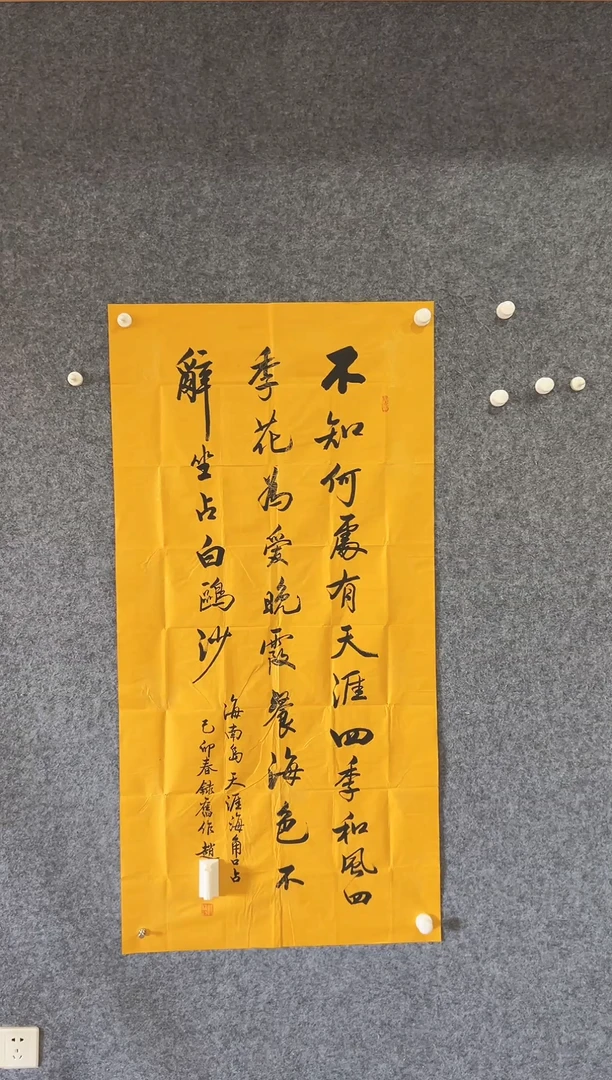 不知何處有天涯四季和風四
季花為愛晚霞餐海色不
辭坐占白鷗沙
海南島天涯海角口占
己卯春録舊作趙